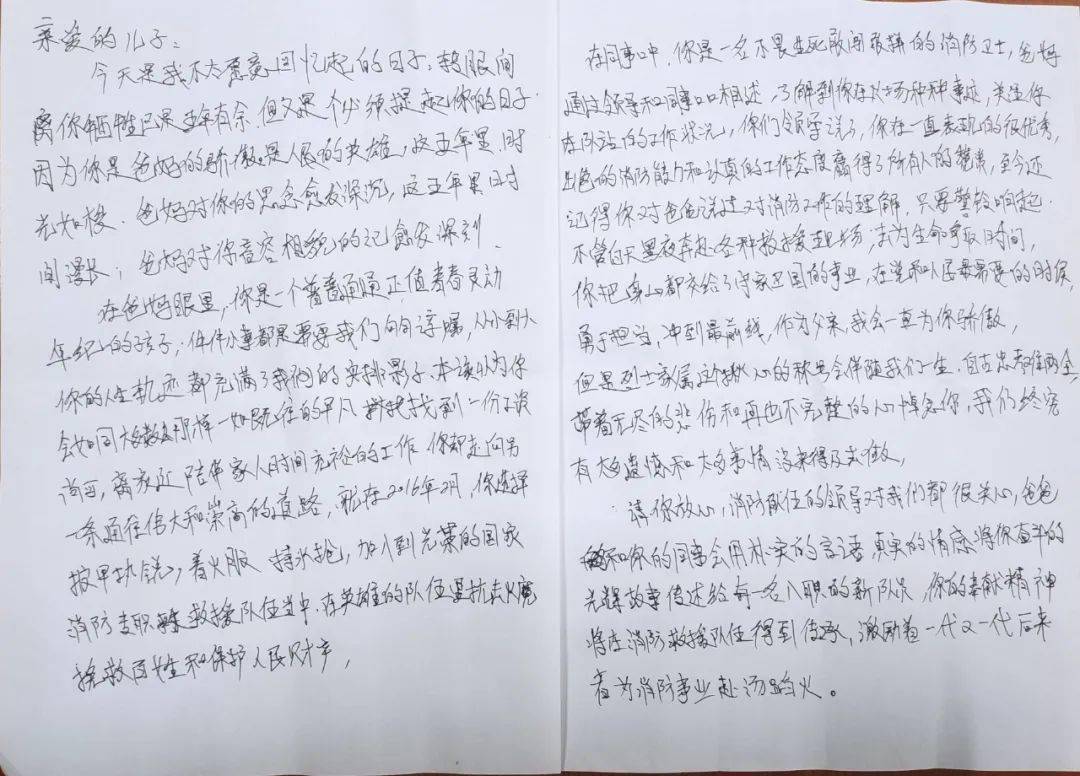 亲爱的儿子：
今天是我不太愿意回忆起的日子，转眼间
离你牺牲已是五年有余，但又是个必须提起你的日子.
因为你是爸妈的骄傲是人民的英雄，这五年里，时
光如梭，爸妈对你的思念愈发深沉，这五年里时
间漫长；爸妈对你音容相貌的记愈发深刻.
在爸妈眼里，你是一个普普通通正值青春灵动
年纪的孩子，件件小事都是需要我们向你叮嘱，从小到大
你的人生轨迹都充满了我们的安排影子，本该以为你
会如同大多数那样一如既往的平凡 找到一份工资
尚可，离家近 陪伴家人时间充裕的工作，你却走向另
一条通往伟大和崇高的道路，就在2016年2月，你选择
披甲执锐，着火服 持水枪，加入到光荣的国家
消防专职救援队伍当中，在英雄的队伍里抗击火魔
抢救百姓和保护人民财产，
在同事口中，你是一名不畏生死敢闯敢拼的消防卫士，爸妈
通过领导和同事口口相述，了解到你在火场种种事迹，关注你
在队站的工作状况，你们领导说了，你在一直表现的很优秀，
出色的消防能力和认真的工作态度赢得了所有人的赞赏，至今还
记得你对爸爸说过对消防工作的理解，只要警铃响起.
不管白天黑夜奔赴各种救援现场，去为生命争取时间，
你把身心都交给了守家卫国的事业，在党和人民最需要的时候，
勇于担当，冲到最前线，作为父亲，我会一直为你骄傲，
但是烈士家属这个揪心的称号会伴随我们一生，自古忠孝难两全，
带着无尽的悲伤和再也不完整的心悼念你，我们终究
有太多遗憾和太多事情没来得及去做，
请你放心，消防队伍的领导对我们都很关心，爸爸
和你的同事会用朴实的言语 真实的情感将你奋斗的
光辉故事传述给每一名入职的新队员，你的奉献精神
将在消防救援队伍得到传承，激励着一代又一代后来
者为消防事业赴汤蹈火。